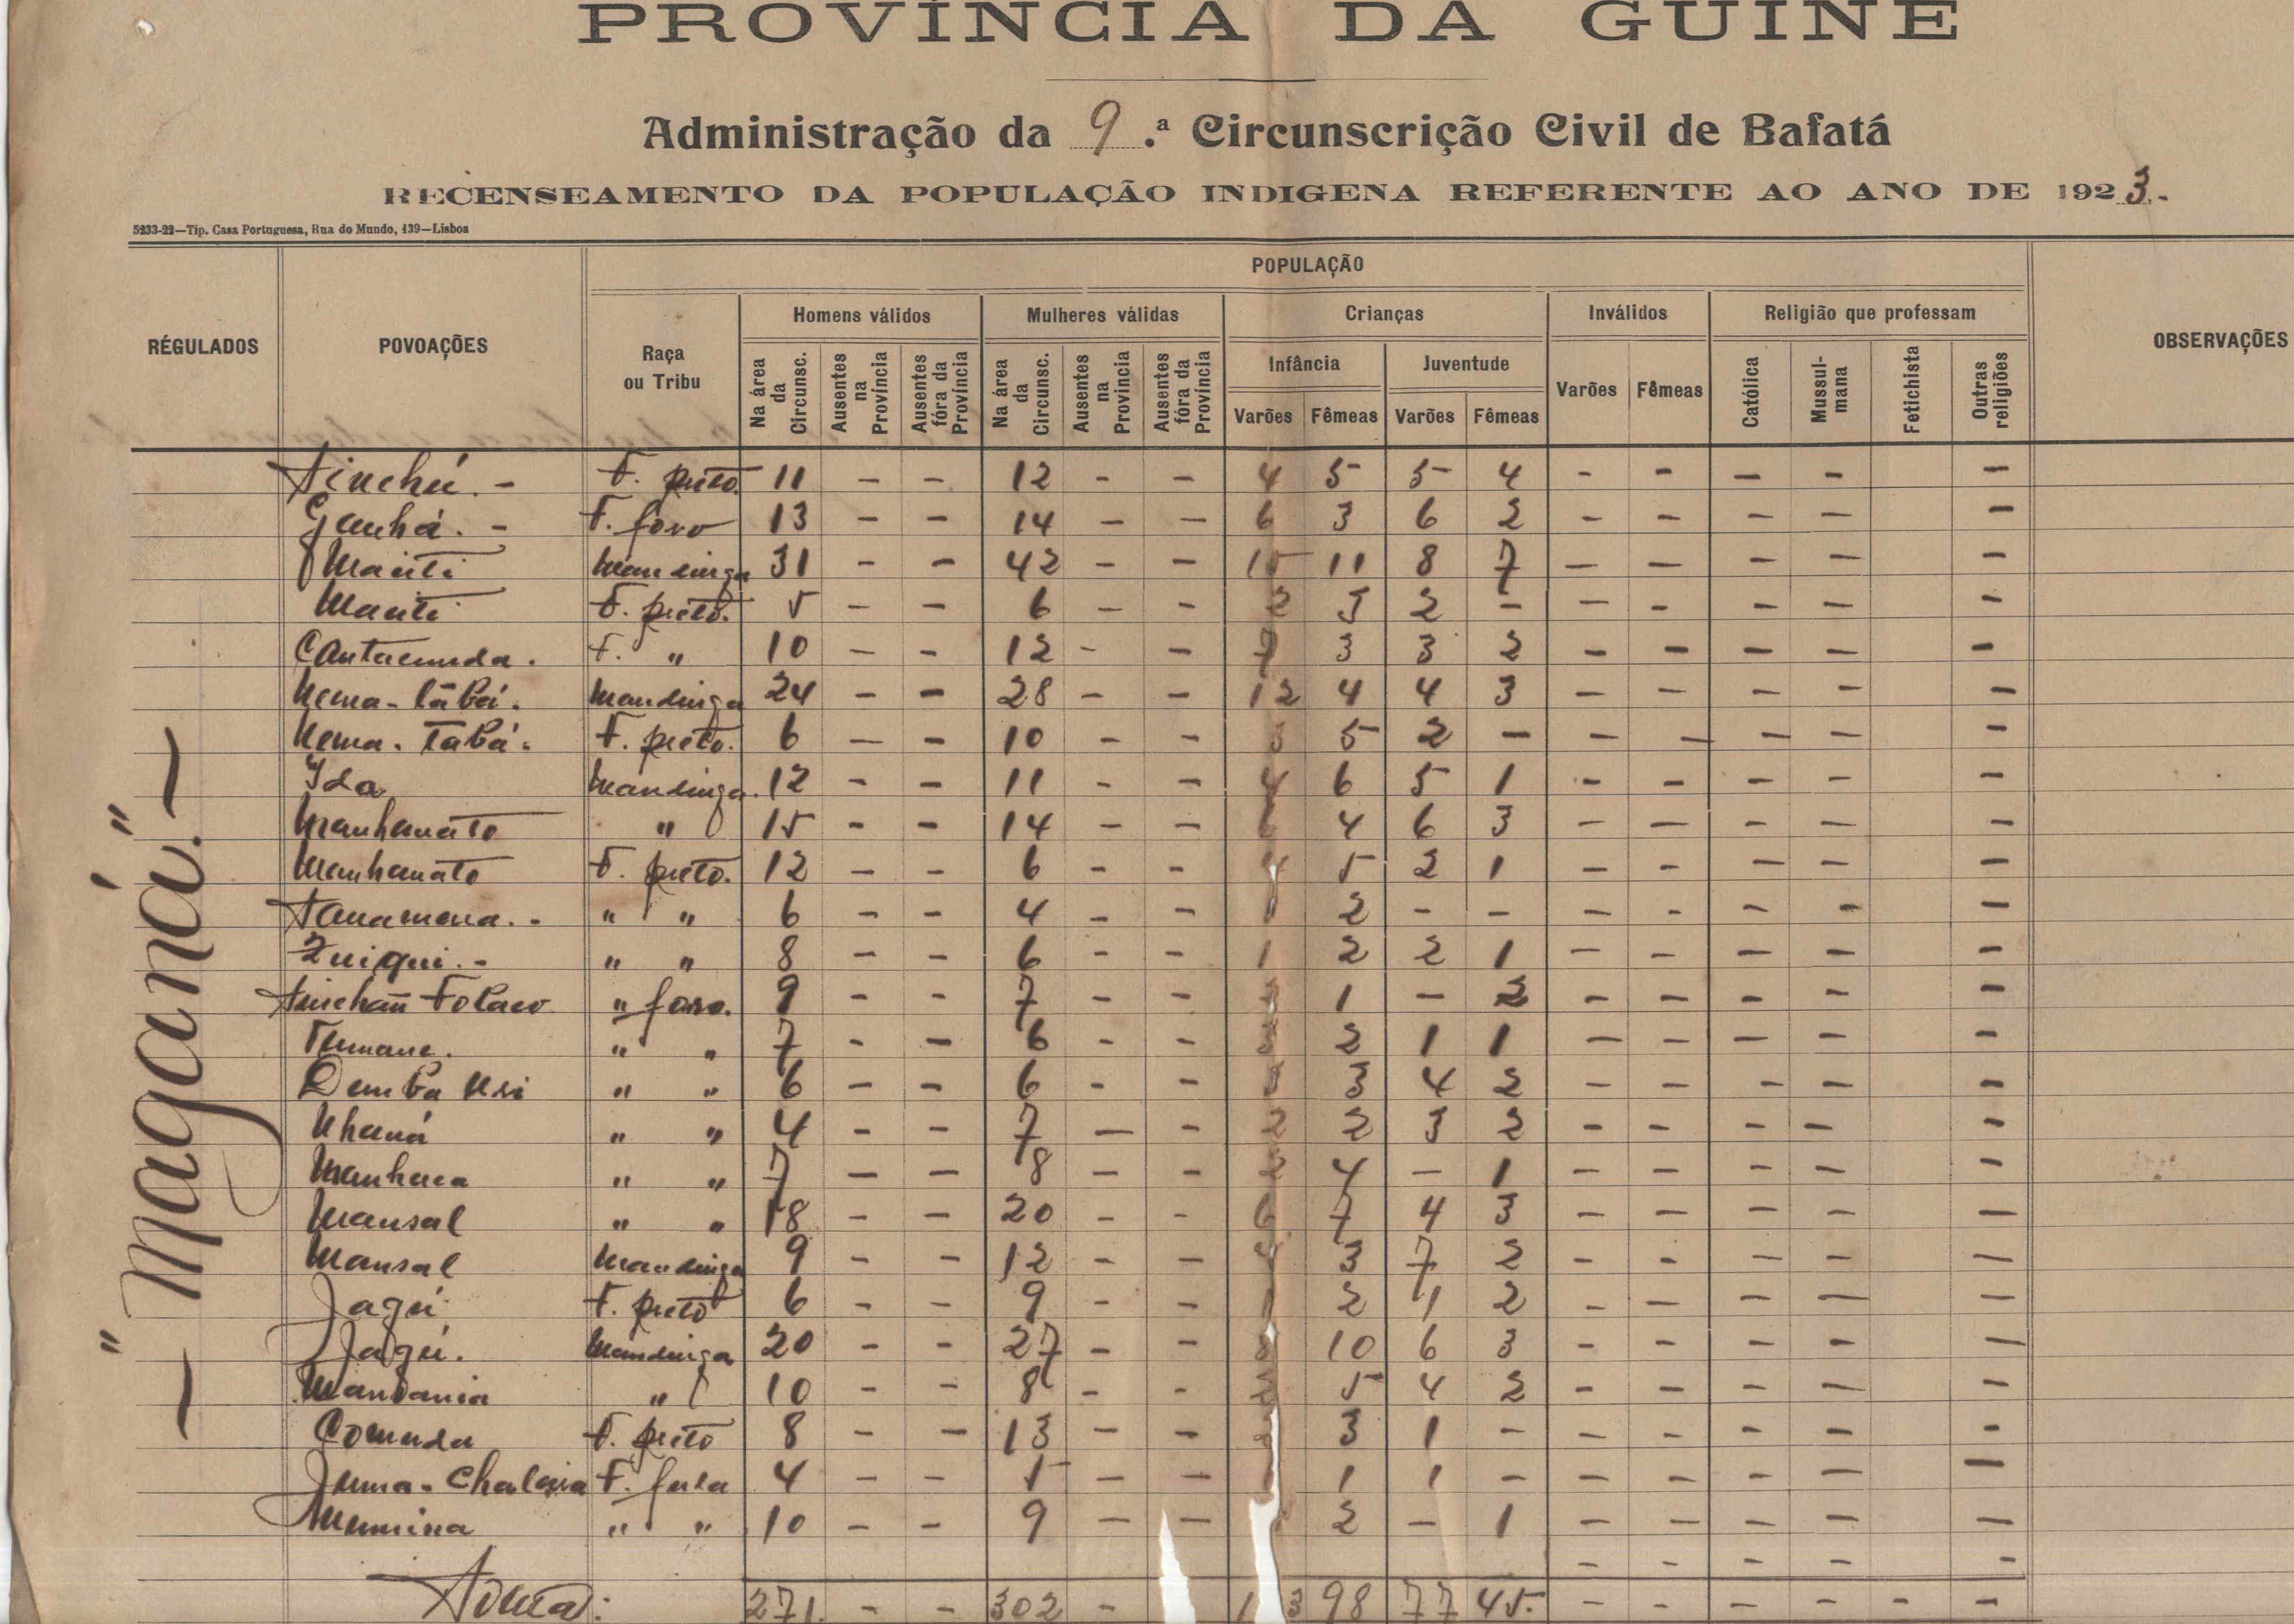 PROVÍNCIA DA GUINÉ
Administração da 9.ª Circunscrição Civil de Bafatá
RECENSEAMENTO DA POPULAÇÃO INDIGENA REFERENTE AO ANO DE 1923.
5233-22—Tip. Casa Portuguesa, Rua do Mundo, 139—Lisboa
POPULAÇÃO
RÉGULADOS POVOAÇÕES Raça ou Tribu Homens válidos Mulheres válidas Crianças Inválidos Religião que professam OBSERVAÇÕES
Infância Juventude
Na área da Circunsc. Ausentes na Província Ausentes fóra da Província Na área da Circunsc. Ausentes na Província Ausentes fóra da Província Varões Fêmeas Varões Fêmeas Varões Fêmeas Católica Mussulmana Fetichista Outras religiões
— "Maganá". —
Sinchú. - F. preto. 11 — — 12 — — 4 5 5 4 — — — — —
Ganhá. - F. forro 13 — — 14 — — 6 3 6 2 — — — — —
Manti Mandinga 31 — — 42 — — 15 11 8 7 — — — — —
Manti F. preto. 5 — — 6 — — 2 3 2 — — — — — —
Cantacunda. F. " 10 — — 12 — — 7 3 3 2 — — — — —
Nema-Tábá. Mandinga 24 — — 28 — — 12 4 4 3 — — — — —
Nema. Tabá. F. preto. 6 — — 10 — — 3 5 2 — — — — — —
Ida Mandinga. 12 — — 11 — — 4 6 5 1 — — — — —
Manhanáto " 15 — — 14 — — 4 6 3 — — — — —
Manhanáto F. preto. 12 — — 6 — — 4 5 2 1 — — — — —
Sanamena. - " " 6 — — 4 — — 1 2 — — — — — — —
" " 8 — — 6 — — 1 2 2 1 — — — — —
" forro. 9 — — 7 — — 1 — 2 — — — — —
Tumane. " " 7 — — 6 — — 2 1 1 — — — — —
Demba Uri " " 6 — — 6 — — 3 4 2 — — — — —
Nhaná " " 4 — — 7 — — 2 2 3 2 — — — — —
Manhaca " " 7 — — 8 — — 2 4 — 1 — — — — —
Mansal " " 18 — — 20 — — 6 7 4 3 — — — — —
Mansal Mandinga 9 — — 12 — — 3 7 2 — — — — —
Jagú. F. preto 6 — — 9 — — 1 2 1 2 — — — — —
Jagú. Mandinga 20 — — 27 — — 8 10 6 3 — — — — —
" 10 — — 8 — — 5 4 2 — — — — —
Comuda F. preto 8 — — 13 — — 3 1 — — — — — —
F. fula 4 — — 5 — — 1 1 — — — — — —
" " 10 — — 9 — — 2 — 1 — — — — —
— — — — —
Soma: 271. — — 302 — 98 77 45. — — — — — —